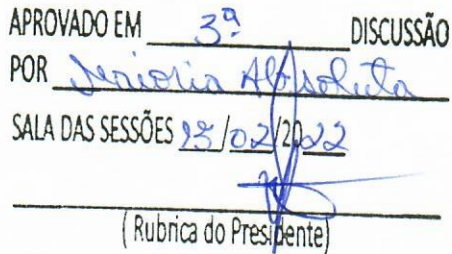 APROVADO EM 3ª DISCUSSÃO
POR Maioria Absoluta
SALA DAS SESSÕES 15/02/2022
( Rubrica do Presidente)